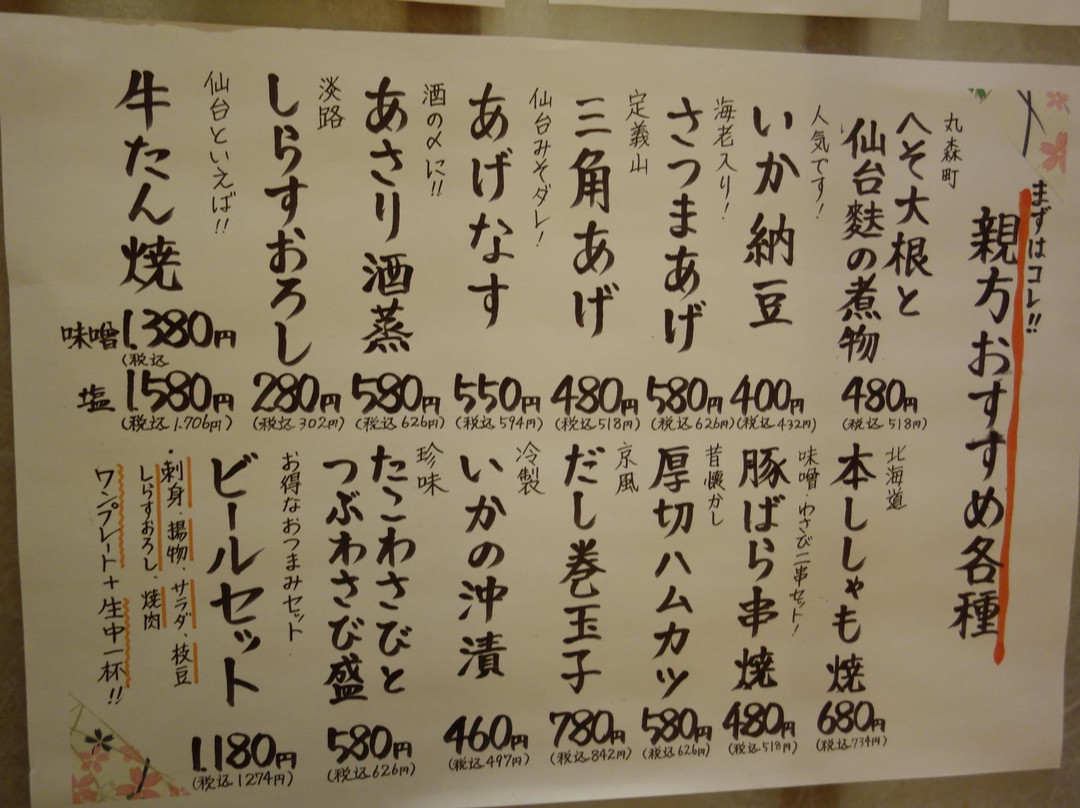 まずはコレ!!
親方おすすめ各種
丸森町
へそ大根と
仙台麩の煮物
480円
(税込518円)
人気です!
いか納豆
400円
(税込432円)
海老入り!
さつまあげ
580円
(税込626円)
定義山
三角あげ
480円
(税込518円)
仙台みそダレ!
あげなす
550円
(税込594円)
酒の〆に!!
あさり酒蒸
580円
(税込626円)
淡路
しらすおろし
280円
(税込302円)
仙台といえば!!
牛たん焼
味噌1.380円
(税込
塩1.580円
(税込1.706円)
北海道
本ししゃも焼
680円
(税込734円)
味噌・わさび二串セット!
豚ばら串焼
480円
(税込518円)
昔懐かし
厚切ハムカツ
580円
(税込626円)
京風
だし巻玉子
780円
(税込842円)
冷製
いかの沖漬
460円
(税込497円)
珍味
たこわさびと
つぶわさび盛
580円
(税込626円)
お得なおつまみセット
ビールセット
1.180円
(税込1274円)
・刺身・揚物・サラダ、枝豆
しらすおろし、焼肉
ワンプレート+生中一杯!!